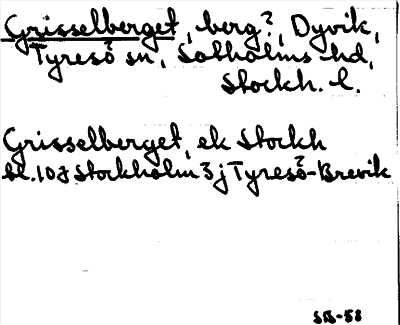 Grisselberget, berg?, Dyvik,
Tyresö sn, Sotholms hd,
Stockh. l.
Grisselberget, ek Stockh
bl. 107 Stockholm 3 j Tyresö-Brevik
SB-58